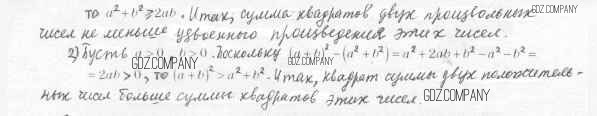 то a² + b² ⩾ 2ab. Итак, сумма квадратов двух произвольных
GDZ.COMPANY
чисел не меньше удвоенного произведения этих чисел.
2) Пусть a > 0, b > 0. Поскольку (a + b)² − (a² + b²) = a² + 2ab + b² − a² − b² =
GDZ.COMPANY
GDZ.COMPANY
= 2ab > 0, то (a + b)² > a² + b². Итак, квадрат суммы двух положитель-
ных чисел больше суммы квадратов этих чисел.
GDZ.COMPANY